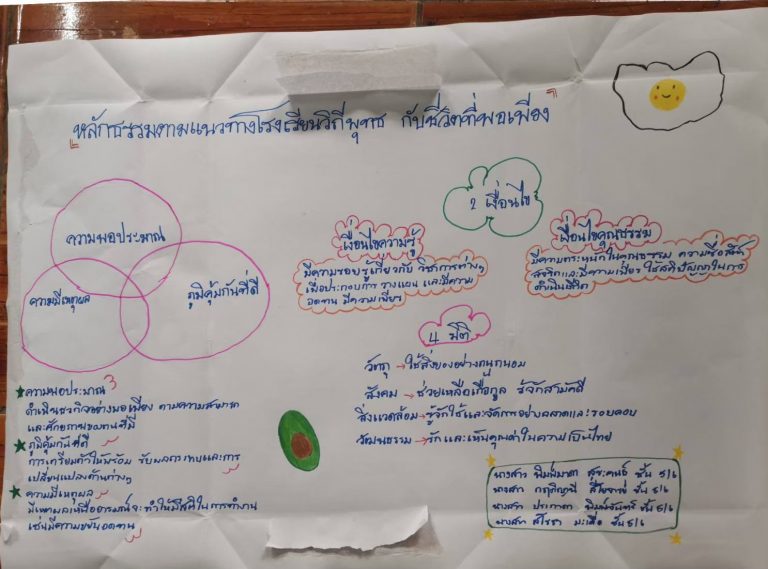 "หลักธรรมตามแนวทางโรงเรียนวิถีพุทธ กับชีวิตที่พอเพียง"
ความพอประมาณ
ความมีเหตุผล
ภูมิคุ้มกันที่ดี
2 เงื่อนไข
เงื่อนไขความรู้
มีความรอบรู้เกี่ยวกับ วิชาการต่างๆ
เพื่อประกอบการ วางแผน และมีความ
อดทน มีความเพียร
เงื่อนไขคุณธรรม
มีความตระหนักในคุณธรรม ความซื่อสัตย์
สุจริตและมีความเพียร ใช้สติปัญญาในการ
ดำเนินชีวิต
4 มิติ
วัตถุ → ใช้สิ่งของอย่างถนุถนอม
สังคม → ช่วยเหลือเกื้อกูล รู้จักสามัคคี
สิ่งแวดล้อม → รู้จักใช้และจัดการอย่างฉลาดและรอบคอบ
วัฒนธรรม → รักและเห็นคุณค่าในความเป็นไทย
ความพอประมาณ
ดำเนินธุรกิจอย่างพอเพียง ตามความสามารถ
และศักยภาพของตนที่มี
ภูมิคุ้มกันที่ดี
การเตรียมตัวให้พร้อม รับผลกระทบและการ
เปลี่ยนแปลงด้านต่างๆ
ความมีเหตุผล
มีเหตุผลเหนืออารมณ์จะทำให้มีสติในการทำงาน
เช่นมีความขยันอดทน
นางสาว พิมพ์มาดา ชั้น 5/6
นางสาว ชั้น 5/6
นางสาว ชั้น 5/6
นางสาว ชั้น 5/6